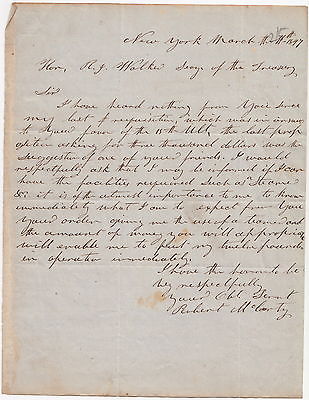 New York March 11th 1847
Hon, R. J. Walker Secy of the Treasury
Sir
I have heard nothing from your since
my last of requisition, which was in answer
to your favor of the 11th Ult, the last prop
osition asking for three thousand dollars was the
suggestion of one of your friends. I would
respectfully ask that I may be informed if I can
have the facilities required such as Steam
&c it is of the utmost importance to me to know
immediately what I am to expect from you
your order giving me the use of a
the amount of money you will appropriate
will enable me to put my
in operation immediately.
I have the honor to be
very respectfully
Your Obt Servt
Robert McCarty